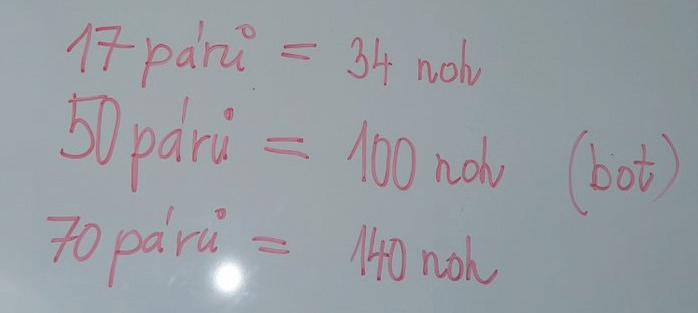 17 párů = 34 noh
50 párů = 100 noh (bot)
70 párů = 140 noh